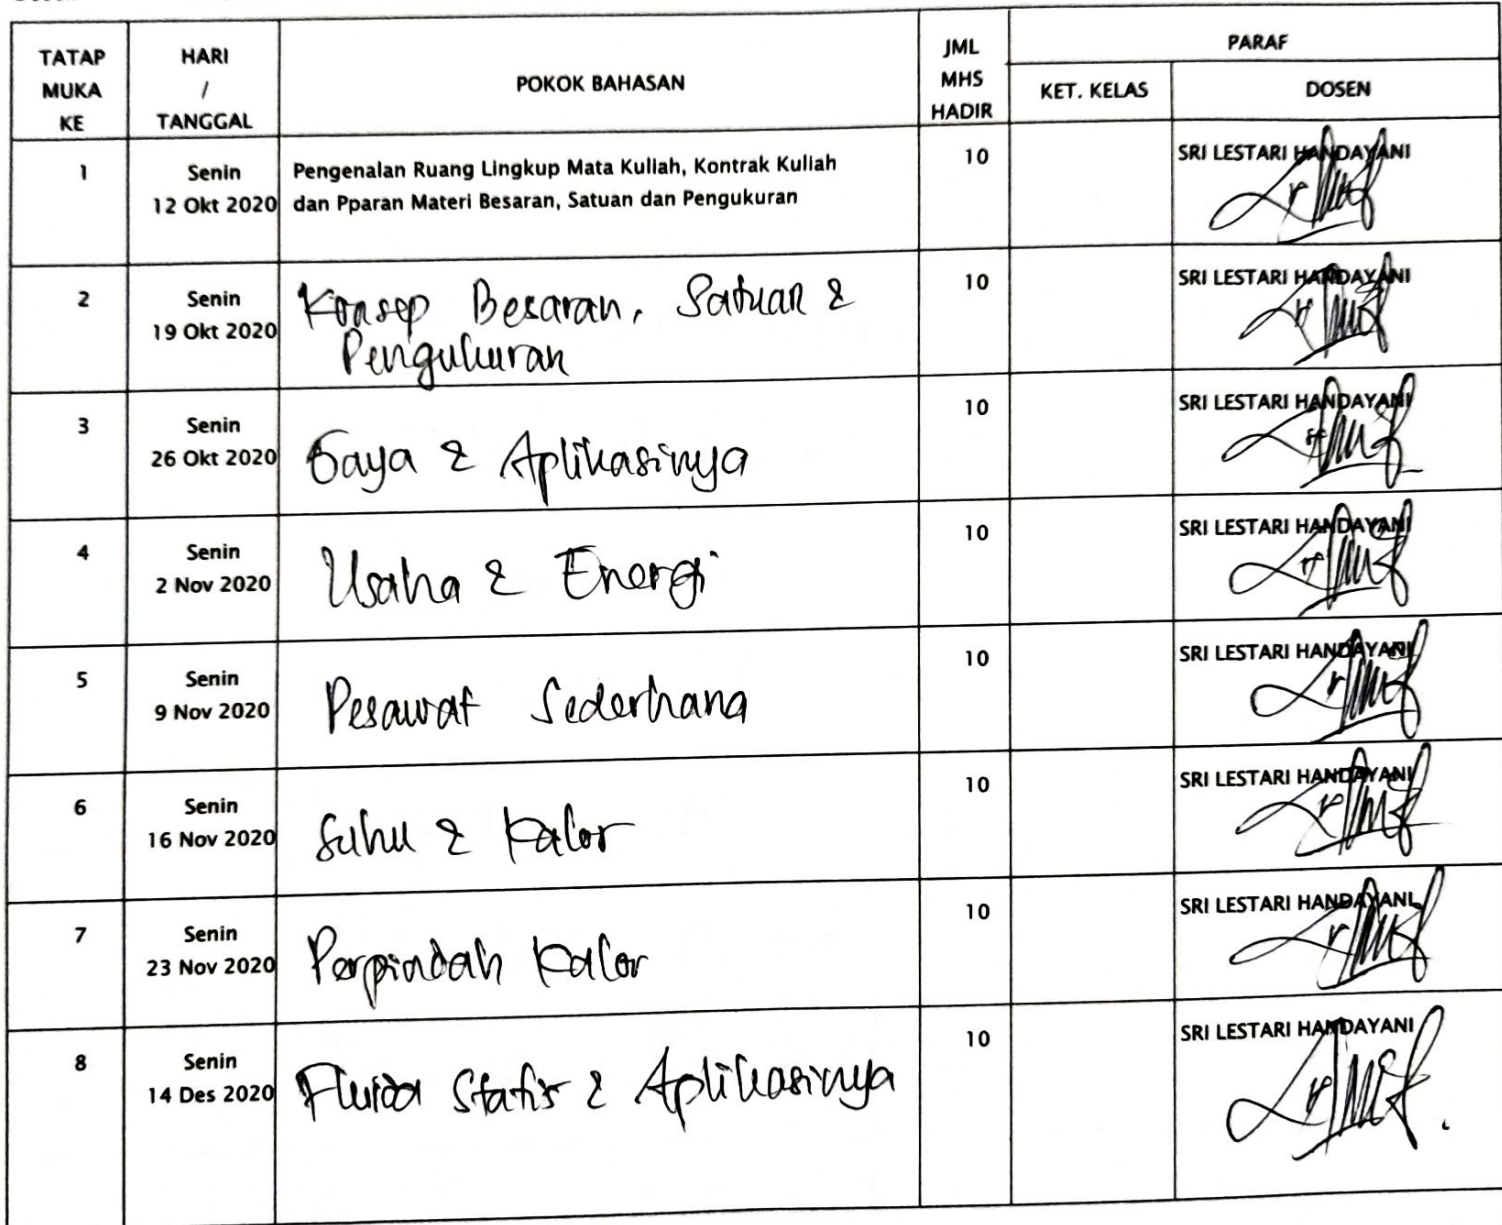 TATAP MUKA KE
HARI / TANGGAL
POKOK BAHASAN
JML MHS HADIR
PARAF
KET. KELAS
DOSEN
1
Senin
12 Okt 2020
Pengenalan Ruang Lingkup Mata Kuliah, Kontrak Kuliah
dan Pparan Materi Besaran, Satuan dan Pengukuran
10
SRI LESTARI HANDAYANI
2
Senin
19 Okt 2020
Konsep Besaran, Satuan &
Pengukuran
10
SRI LESTARI HANDAYANI
3
Senin
26 Okt 2020
Gaya & Aplikasinya
10
SRI LESTARI HANDAYANI
4
Senin
2 Nov 2020
Usaha & Energi
10
SRI LESTARI HANDAYANI
5
Senin
9 Nov 2020
Pesawat Sederhana
10
SRI LESTARI HANDAYANI
6
Senin
16 Nov 2020
Suhu & Kalor
10
SRI LESTARI HANDAYANI
7
Senin
23 Nov 2020
Perpindah Kalor
10
SRI LESTARI HANDAYANI
8
Senin
14 Des 2020
Fluida Statis & Aplikasinya
10
SRI LESTARI HANDAYANI